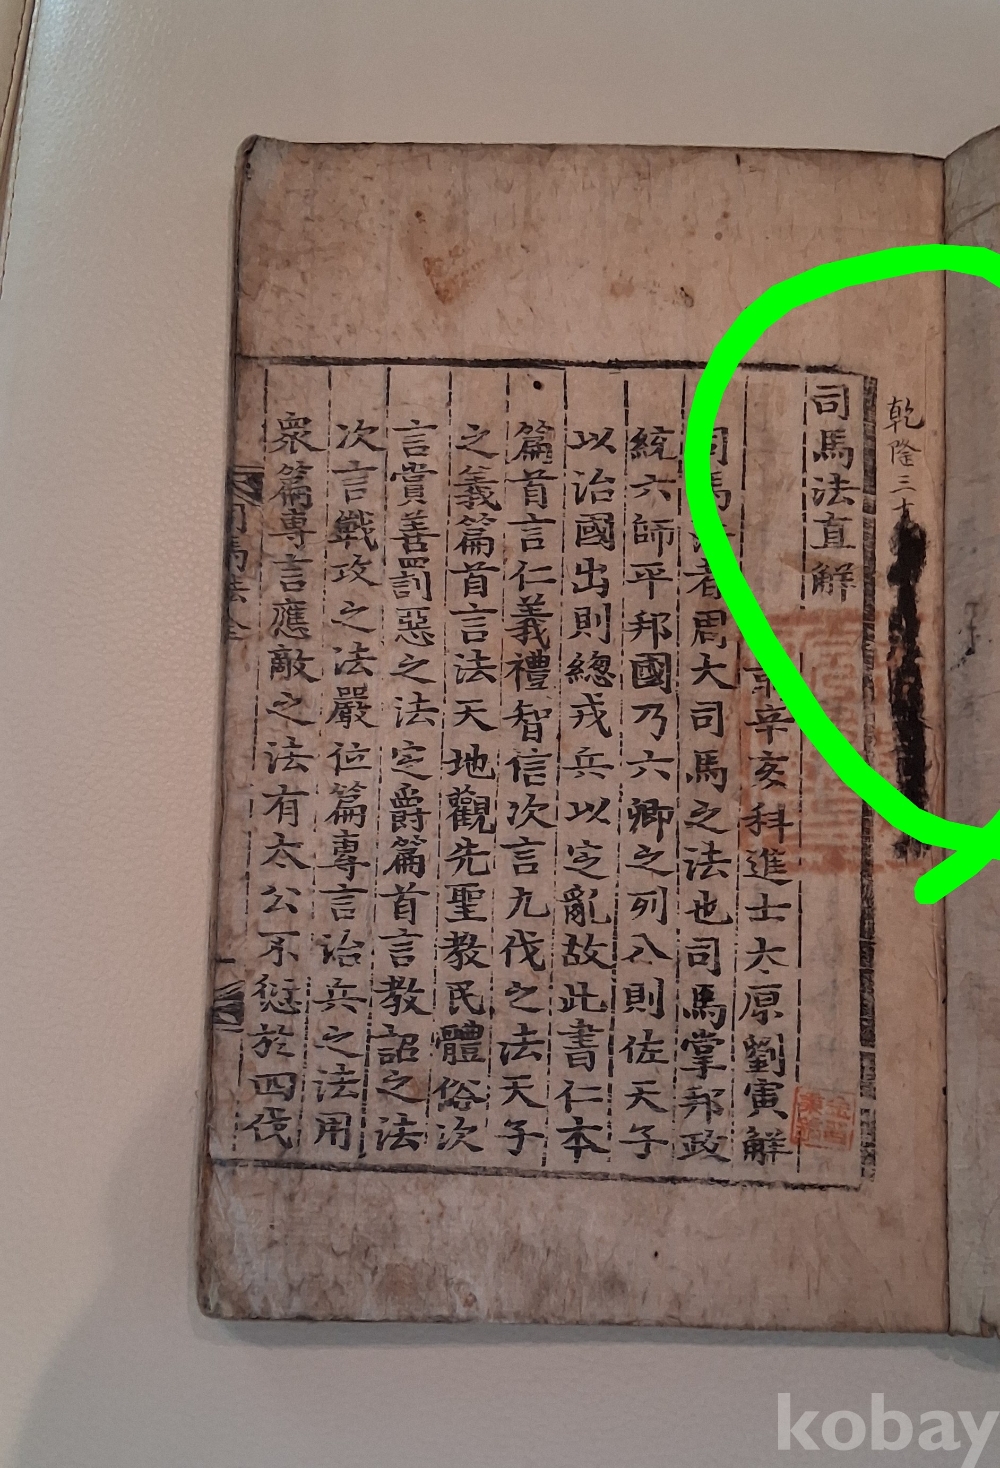 乾隆三十
司馬法直解
辛亥科進士太原劉寅解
司馬法者周大司馬之法也司馬掌邦政
統六師平邦國乃六卿之列入則佐天子
以治國出則總戎兵以定亂故此書仁本
篇首言仁義禮智信次言九伐之法天子
之義篇首言法天地觀先聖教民體俗次
言賞善罰惡之法定爵篇首言教詔之法
次言戰攻之法嚴位篇專言治兵之法用
衆篇專言應敵之法有太公不愆於四伐
司馬法全
kobay